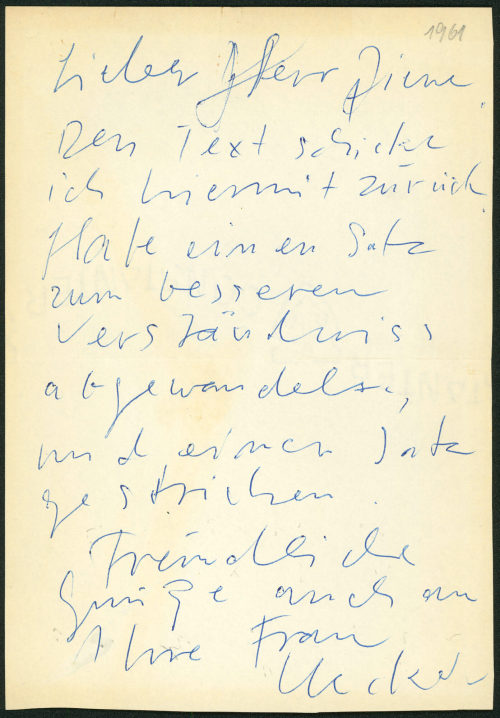 1961
Lieber Herr
Den Text schicke
ich hiermit zurück
Habe einen Satz
zum besseren
Verständniss
abgewandelt,
und einen Satz
gestrichen.
Freundliche
Grüße auch an
Ihre Frau
Uecker